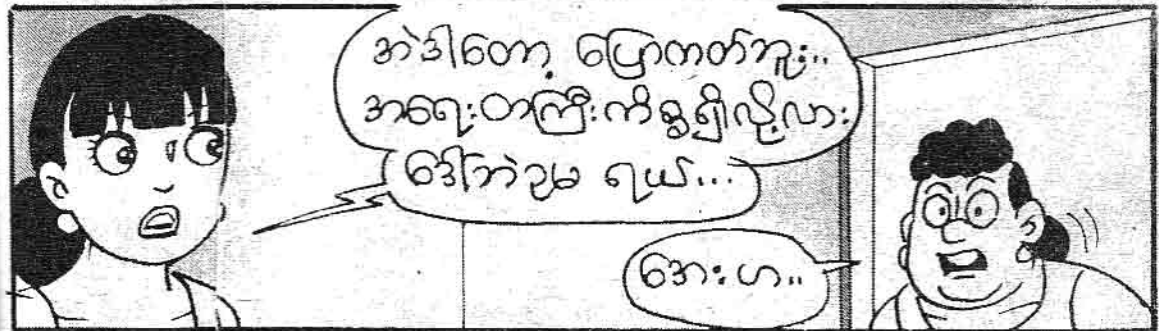 အဲဒါတော့ ပြောတတ်ဘူး..
အရေးတကြီးကိစ္စရှိလို့လား
ဒေါ်ဘဲဥမ ရယ်...
အေးဟ..